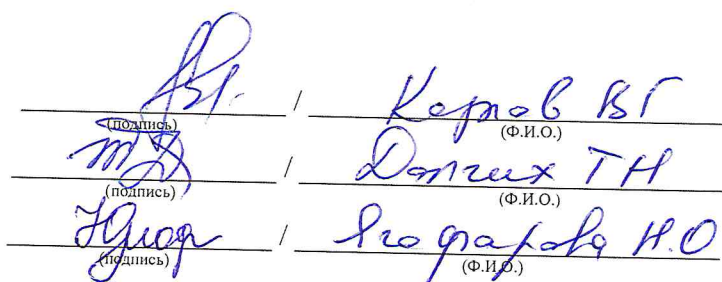 / Карпов ВГ
(подпись) (Ф.И.О.)
/ Долгих ТН
(подпись) (Ф.И.О.)
/ Ягофарова Н.О
(подпись) (Ф.И.О.)